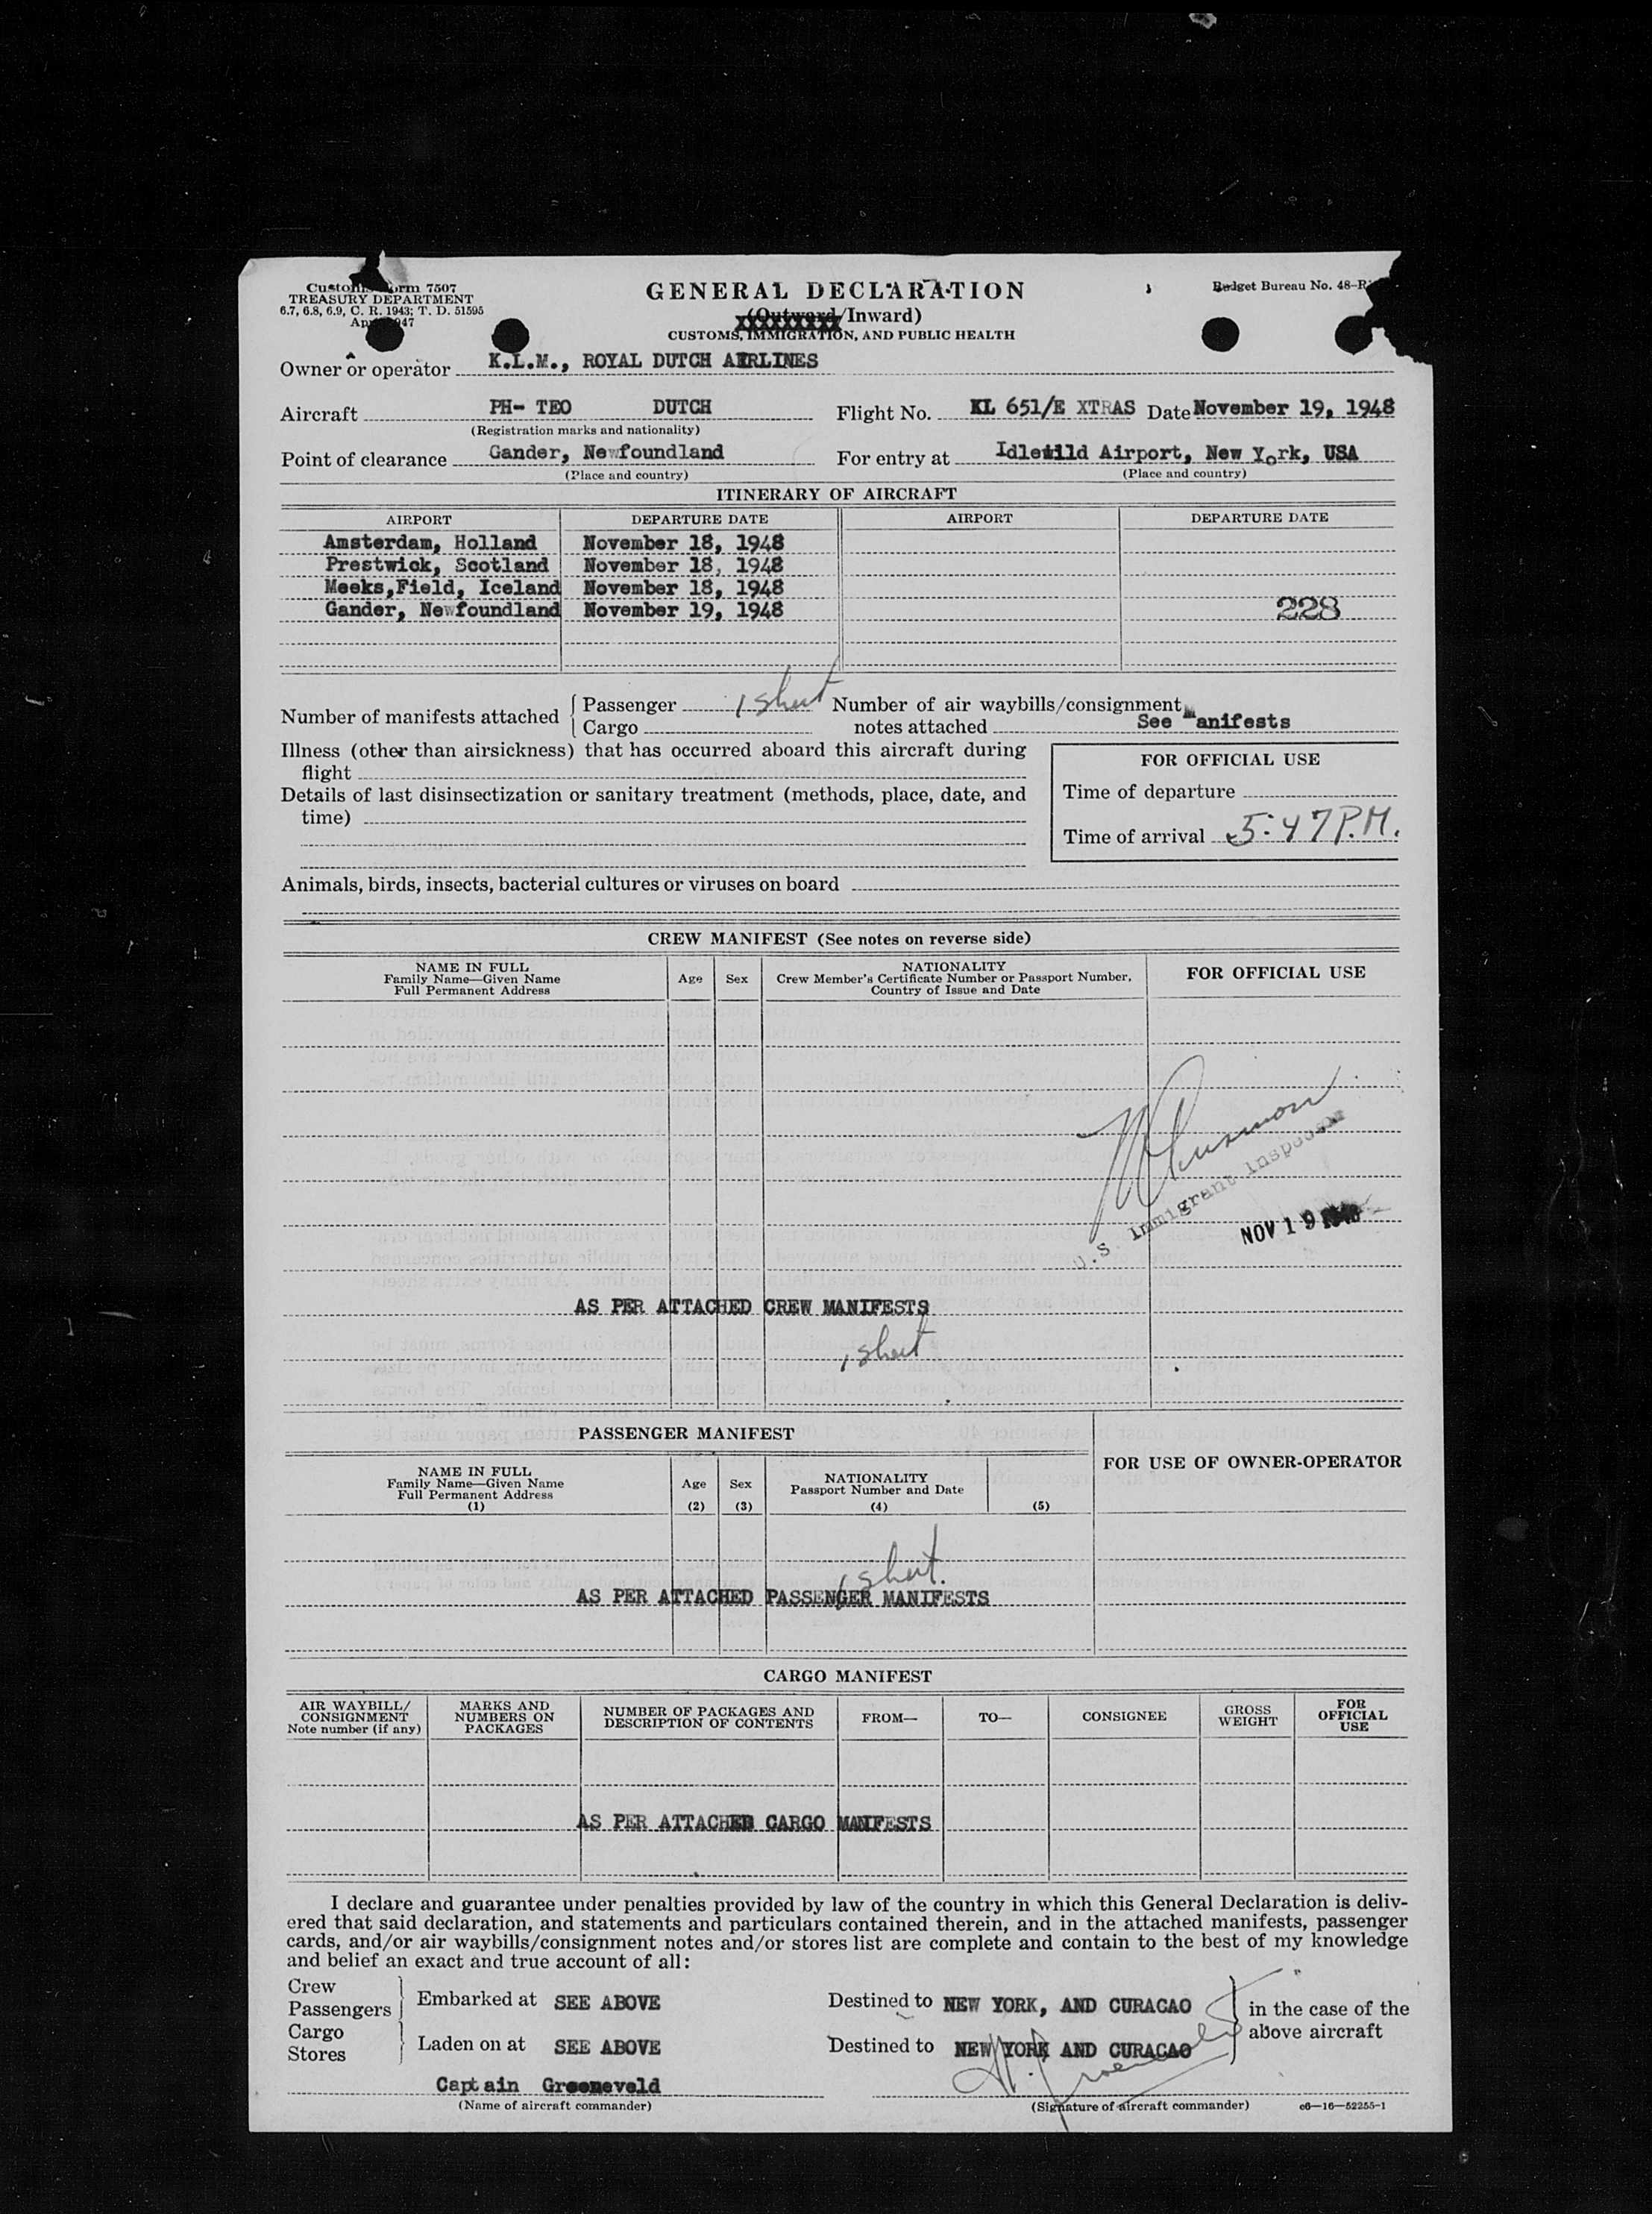 Customs Form 7507
TREASURY DEPARTMENT
6.7, 6.8, 6.9, C. R. 1943; T. D. 51595
GENERAL DECLARATION
(Outward/Inward)
CUSTOMS, IMMIGRATION, AND PUBLIC HEALTH
Budget Bureau No. 48-R
Owner or operator K.L.M., ROYAL DUTCH AIRLINES
Aircraft PH- TEO DUTCH Flight No. KL 651/E XTRAS Date November 19, 1948
(Registration marks and nationality)
Point of clearance Gander, Newfoundland For entry at Idlewild Airport, New York, USA
(Place and country) (Place and country)
ITINERARY OF AIRCRAFT
AIRPORT DEPARTURE DATE AIRPORT DEPARTURE DATE
Amsterdam, Holland November 18, 1948
Prestwick, Scotland November 18, 1948
Meeks,Field, Iceland November 18, 1948
Gander, Newfoundland November 19, 1948 228
Number of manifests attached { Passenger 1 sheet Number of air waybills/consignment
Cargo notes attached See Manifests
Illness (other than airsickness) that has occurred aboard this aircraft during
flight
Details of last disinsectization or sanitary treatment (methods, place, date, and
time)
FOR OFFICIAL USE
Time of departure
Time of arrival 5:47 P.M.
Animals, birds, insects, bacterial cultures or viruses on board
CREW MANIFEST (See notes on reverse side)
NAME IN FULL
Family Name—Given Name
Full Permanent Address
Age
Sex
NATIONALITY
Crew Member's Certificate Number or Passport Number,
Country of Issue and Date
FOR OFFICIAL USE
U.S. Immigrant Inspector
NOV 19 1948
AS PER ATTACHED CREW MANIFESTS
1 sheet
PASSENGER MANIFEST
FOR USE OF OWNER-OPERATOR
NAME IN FULL
Family Name—Given Name
Full Permanent Address
(1)
Age
(2)
Sex
(3)
NATIONALITY
Passport Number and Date
(4)
(5)
1 sheet.
AS PER ATTACHED PASSENGER MANIFESTS
CARGO MANIFEST
AIR WAYBILL/
CONSIGNMENT
Note number (if any)
MARKS AND
NUMBERS ON
PACKAGES
NUMBER OF PACKAGES AND
DESCRIPTION OF CONTENTS
FROM—
TO—
CONSIGNEE
GROSS
WEIGHT
FOR
OFFICIAL
USE
AS PER ATTACHED CARGO MANIFESTS
I declare and guarantee under penalties provided by law of the country in which this General Declaration is deliv-
ered that said declaration, and statements and particulars contained therein, and in the attached manifests, passenger
cards, and/or air waybills/consignment notes and/or stores list are complete and contain to the best of my knowledge
and belief an exact and true account of all:
Crew
Passengers } Embarked at SEE ABOVE Destined to NEW YORK, AND CURACAO } in the case of the
Cargo above aircraft
Stores } Laden on at SEE ABOVE Destined to NEW YORK AND CURACAO
Captain Groeneveld
(Name of aircraft commander) (Signature of aircraft commander) c6—16—52255-1